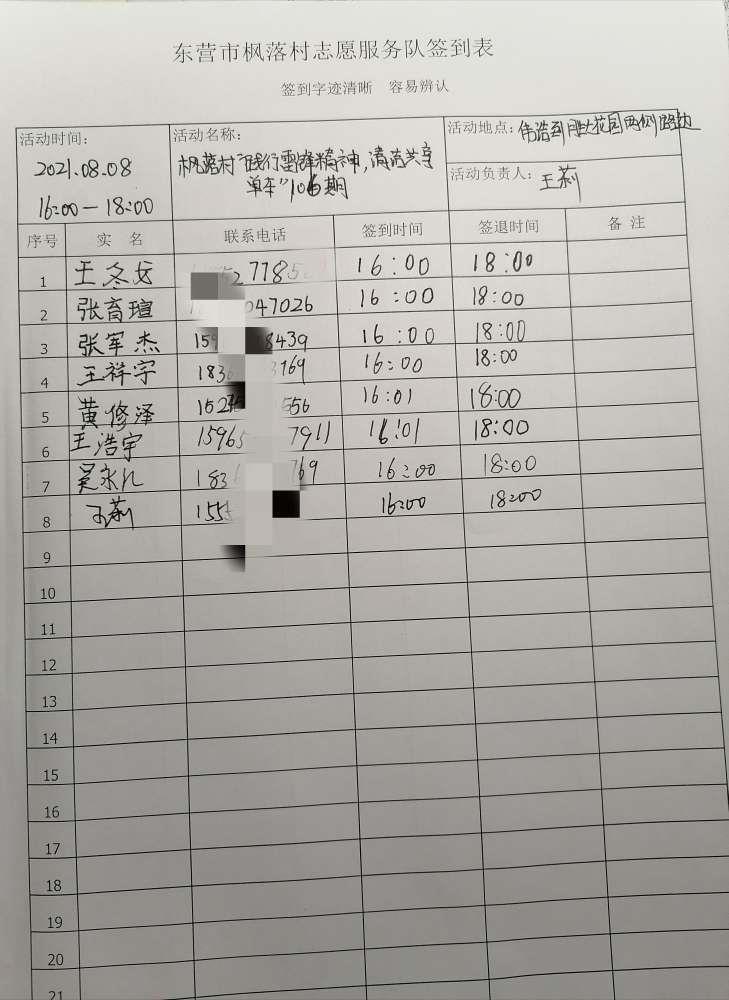 东营市枫落村志愿服务队签到表
签到字迹清晰 容易辨认
活动时间: 活动名称: 活动地点: 伟浩到胜大花园两侧路边
2021.08.08 枫落村"践行雷锋精神,清洁共享
16:00—18:00 单车"106期 活动负责人: 王莉
序号 实 名 联系电话 签到时间 签退时间 备 注
1 王冬 778 16:00 18:00
2 张育瑄 047026 16:00 18:00
3 张军杰 159 8439 16:00 18:00
4 王祥宇 183 169 16:00 18:00
5 黄修泽 556 16:01 18:00
6 王浩宇 15965 7911 16:01 18:00
7 吴永 183 769 16:00 18:00
8 王莉 155 16:00 18:00
9
10
11
12
13
14
15
16
17
18
19
20
21